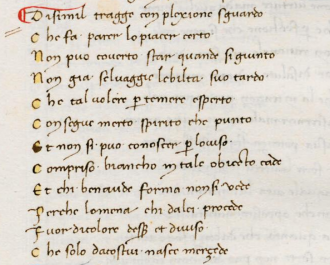 Disimil tragge con plexione sguardo
Che fa parer lo piacer certo
Non puo couerto star quando si giunto
Non gia seluaggie lebilta suo tardo
Che tal volere p temere esperto
Consegue merto spirito che punto
Et non si puo conoscer p louiso
Compriso brancho in tale obiecto cade
Et chi ben aude forma non si vede
Perche lomena chi dalei procede
Fuor di colore desse et diuiso
Che solo dacostui nasce merzede